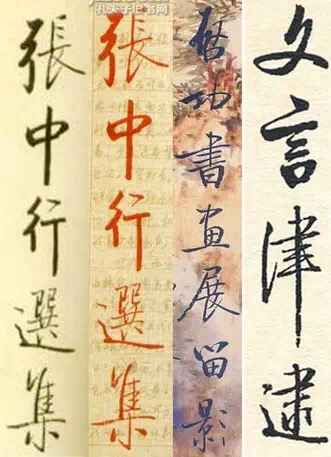 張中行選集
張中行選集
啓功書畫展留影
文言津逮